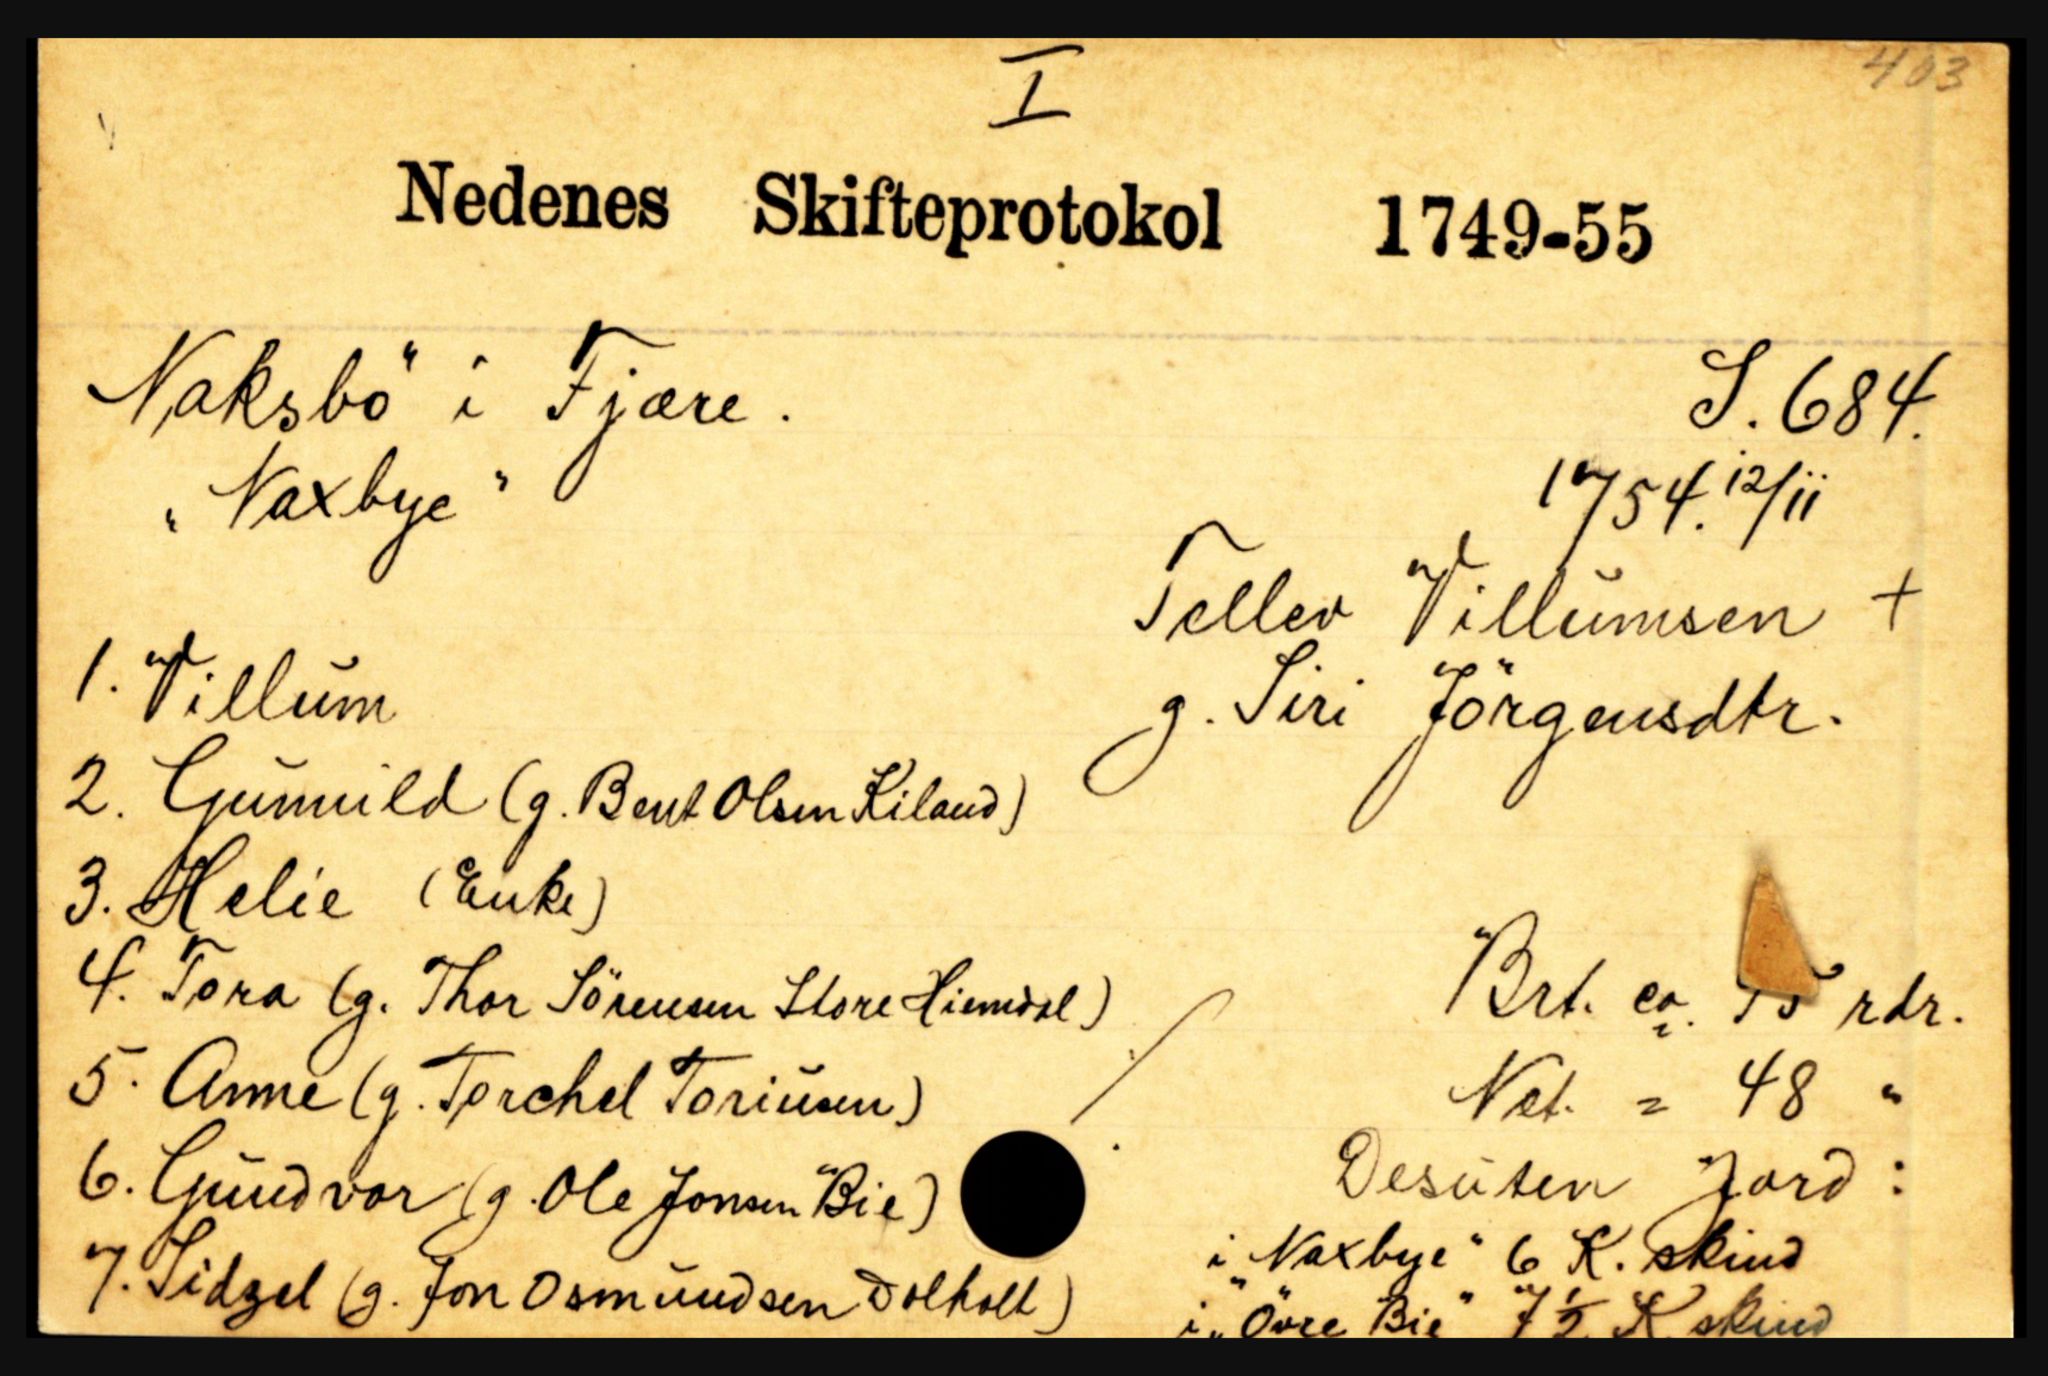 I
403
Nedenes Skifteprotokol 1749-55
Naksbö" i Fjære.
S. 684.
„Naxbye"
1754. 12/11
Tellev Villumsen +
g. Siri Jörgensdtr.
1. Villum
2. Gunnild (g. Bent Olsen Kiland)
3. Helie (Enke)
4. Tora (g. Thor Sörensen Store Hiemdal)
5. Anne (g. Torchel Toriusen)
6. Gundvor (g. Ole Jonsen Bie)
7. Sidzel (g. Jon Osmundsen Dolholt)
Brt. ca. rdr.
Net. = 48 "
Desuten Jord:
i „Naxbye" 6 K. skind
i „Övre Bie" 7 1/2 K skind